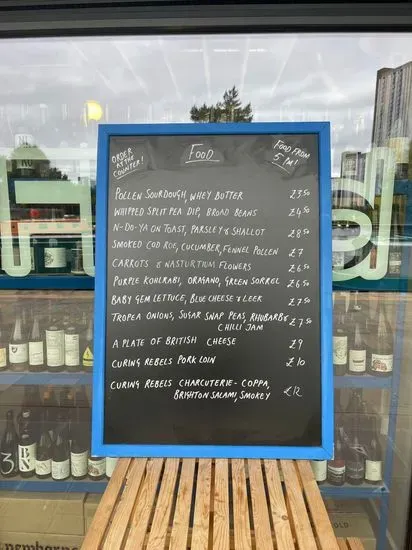 ORDER AT THE COUNTER!
FOOD
FOOD FROM 5PM!
POLLEN SOURDOUGH, WHEY BUTTER £3.50
WHIPPED SPLIT PEA DIP, BROAD BEANS £4.50
N-DO-YA ON TOAST, PARSLEY & SHALLOT £8.50
SMOKED COD ROE, CUCUMBER, FENNEL POLLEN £7
CARROTS & NASTURTIUM FLOWERS £6.50
PURPLE KOHLRABI, ORAGANO, GREEN SORREL £6.50
BABY GEM LETTUCE, BLUE CHEESE & LEEK £7.50
TROPEA ONIONS, SUGAR SNAP PEAS, RHUBARB & £7.50
CHILLI JAM
A PLATE OF BRITISH CHEESE £9
CURING REBELS PORK LOIN £10
CURING REBELS CHARCUTERIE - COPPA, £12
BRIGHTON SALAMI, SMOKEY